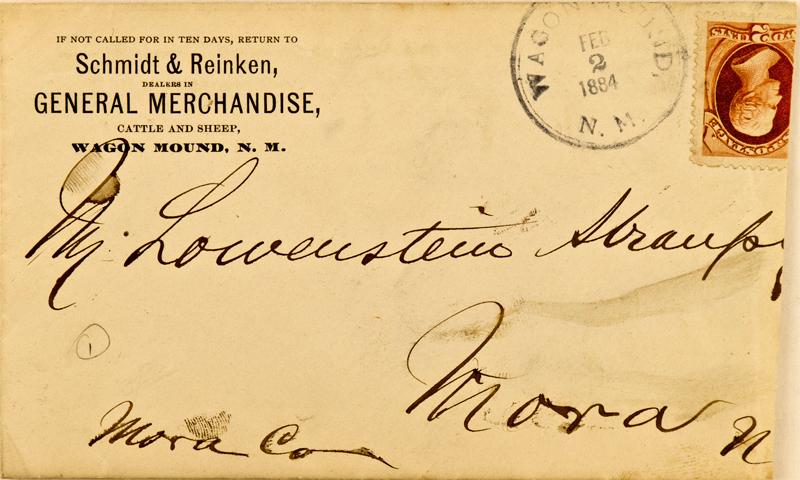 IF NOT CALLED FOR IN TEN DAYS, RETURN TO
Schmidt & Reinken,
DEALERS IN
GENERAL MERCHANDISE,
CATTLE AND SHEEP,
WAGON MOUND, N. M.
WAGON MOUND,
FEB
2
1884
N. M.
M. Lowenstein Strauss
Mora N
Mora Co
1